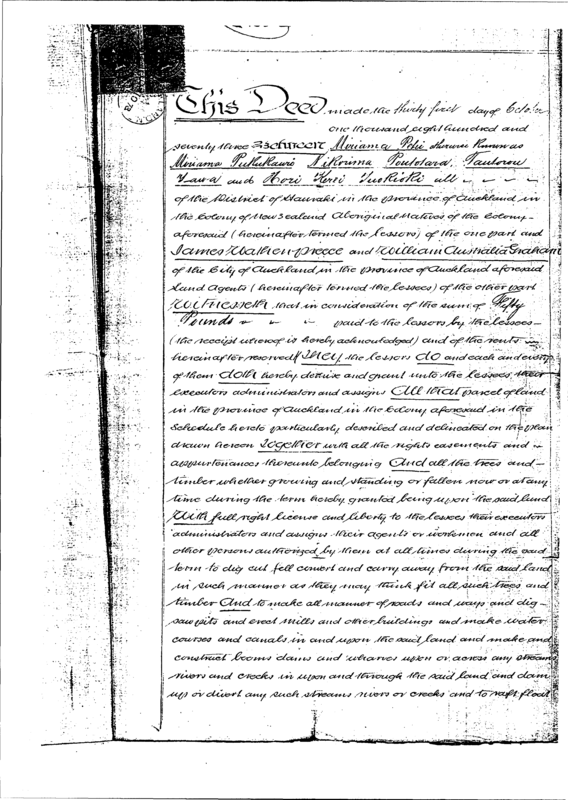 This Deed made the thirty first day of October
one thousand eight hundred and
seventy three Between Miriama Pehi otherwise known as
Miriama
and Hori all
of the District of Hauraki in the province of Auckland in
the Colony of New Zealand Aboriginal Natives of the Colony
aforesaid (hereinafter termed the lessors) of the one part and
James Wathen Preece and William Australia Graham
of the City of Auckland, in the province of Auckland aforesaid
Land Agents (hereinafter termed the lessees) of the other part
Witnesseth that in consideration of the sum of Fifty
Pounds paid to the lessors by the lessees
(the receipt whereof is hereby acknowledged) and of the rents
hereinafter reserved They the lessors do and each and every
of them doth hereby demise and grant unto the lessees their
executors administrators and assigns All that parcel of land
in the province of Auckland in the Colony aforesaid in the
Schedule hereto particularly described and delineated on the plan
drawn hereon Together with all the rights easements and
appurtenances thereunto belonging And all the trees and
timber whether growing and standing or fallen now or at any
time during the term hereby granted being upon the said land
With full right license and liberty to the lessees their executors
administrators and assigns their agents or workmen and all
other persons authorized by them at all times during the said
term to dig cut fell convert and carry away from the said land
in such manner as they may think fit all such trees and
timber And to make all manner of roads and ways and dig
sawpits and erect mills and other buildings and make water
courses and canals in and upon the said land and make and
construct booms dams and wharves upon or across any streams
rivers and creeks in upon and through the said land and dam
up or divert any such streams rivers or creeks and to raft float